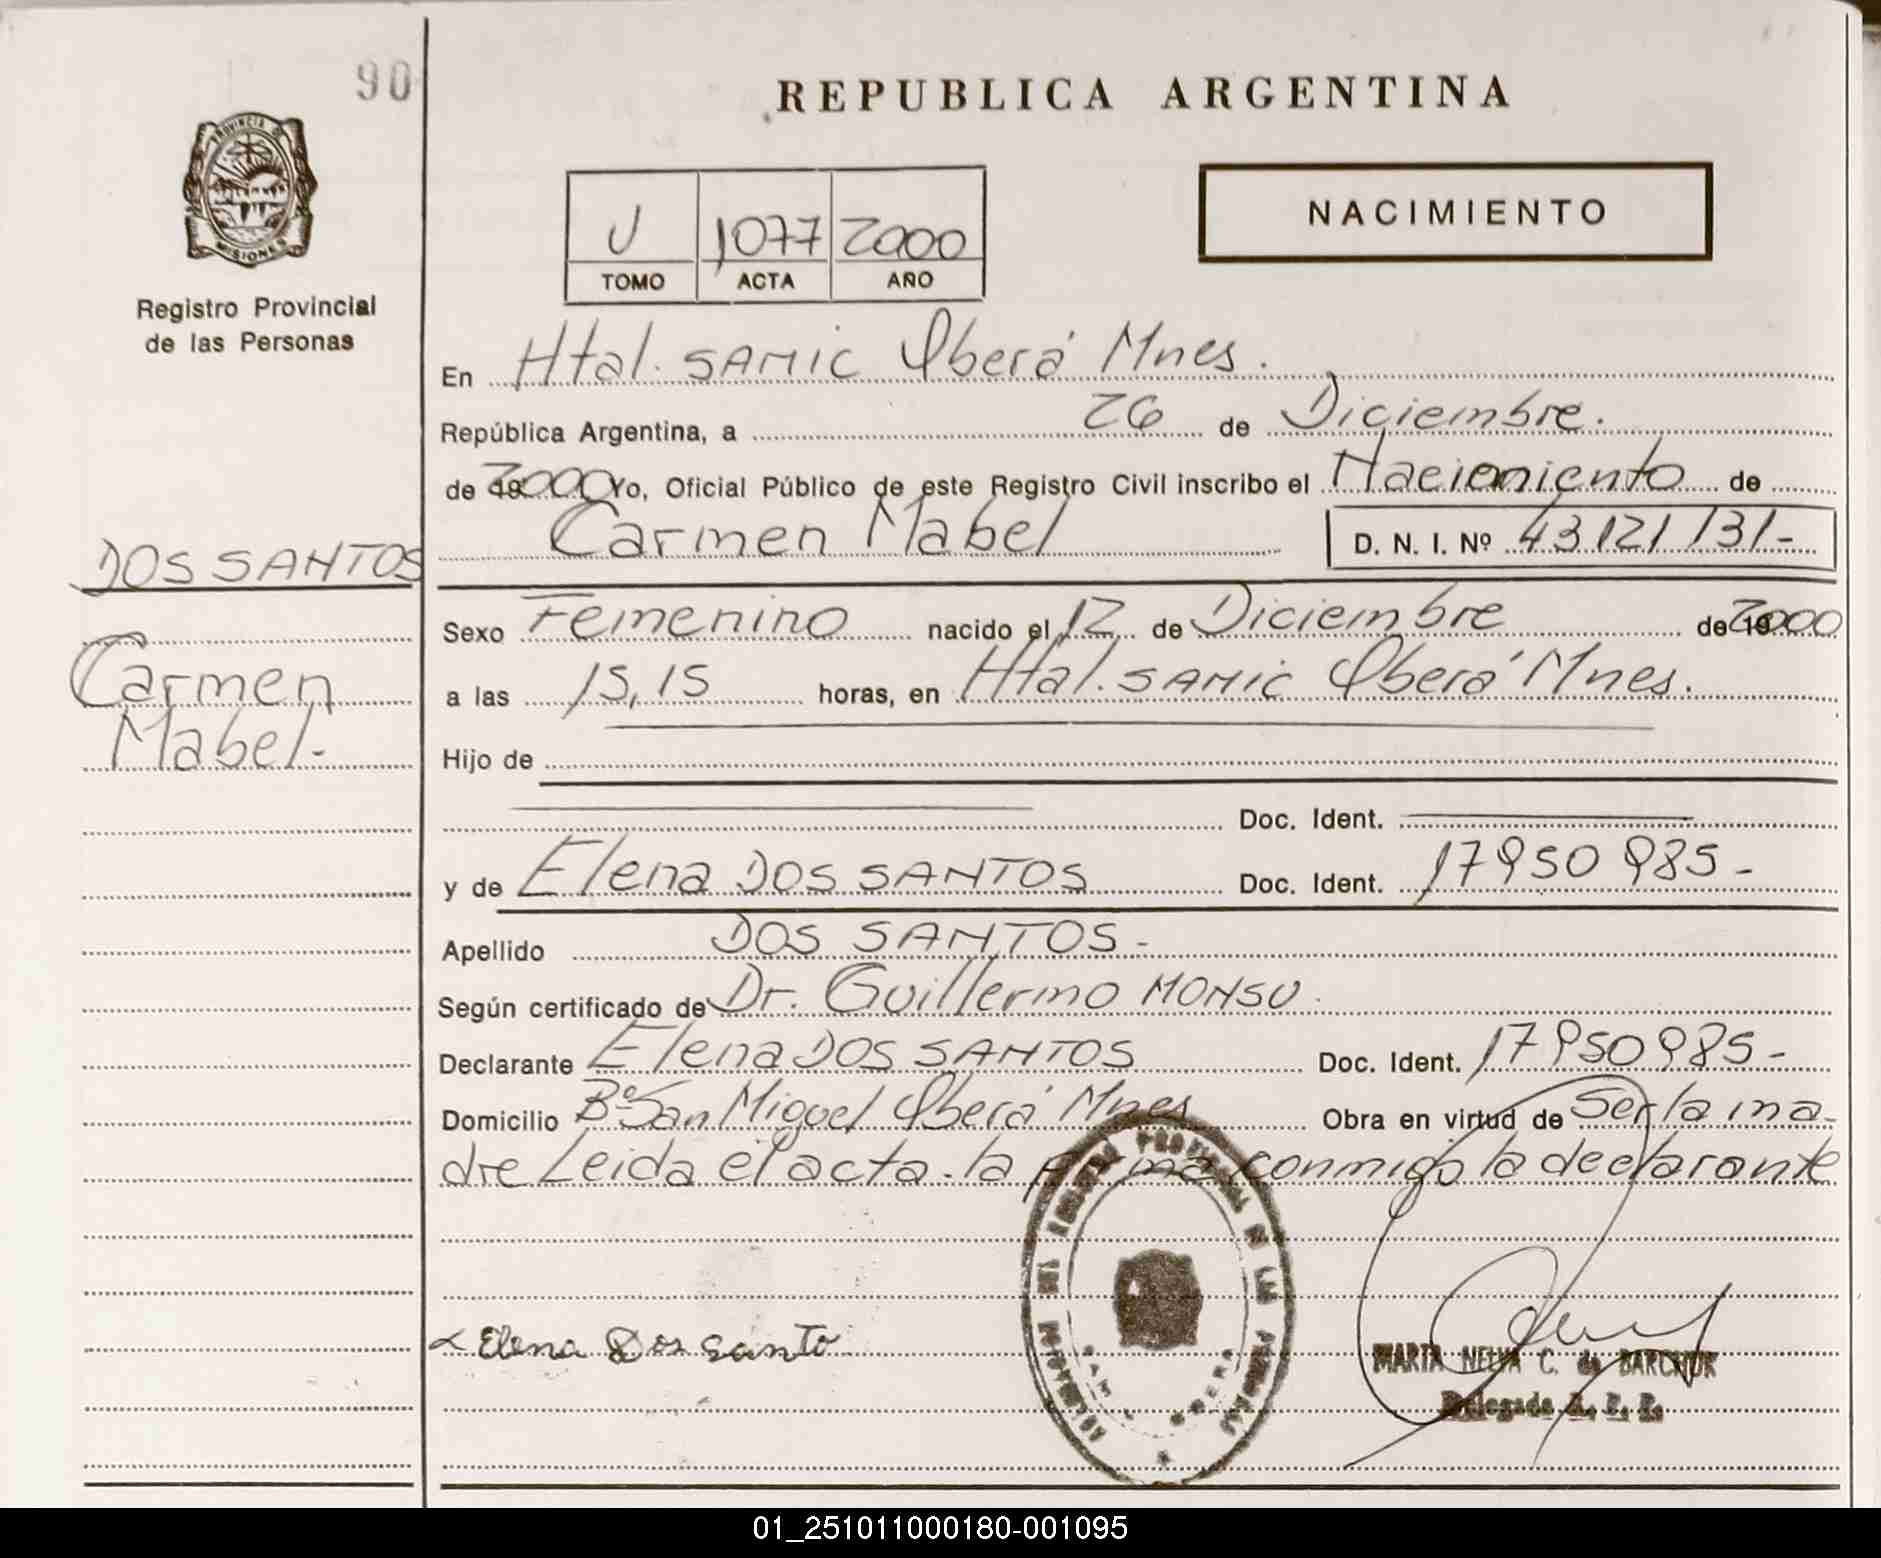 90
REPUBLICA ARGENTINA
PROVINCIA DE
MISIONES
Registro Provincial
de las Personas
U 1077 2000
TOMO ACTA AÑO
NACIMIENTO
En Htal. SAMIC Oberá Mnes.
República Argentina, a 26 de Diciembre.
de 2000 Yo, Oficial Público de este Registro Civil inscribo el Nacimiento de
Carmen Mabel D. N. I. Nº 43121131-
DOS SANTOS
Carmen
Mabel-
Sexo Femenino nacido el 12 de Diciembre de 2000
a las 15,15 horas, en Htal. SAMIC Oberá Mnes.
Hijo de
Doc. Ident.
y de Elena DOS SANTOS Doc. Ident. 17950985-
Apellido DOS SANTOS-
Según certificado de Dr. Guillermo MONSU
Declarante Elena DOS SANTOS Doc. Ident. 17950985-
Domicilio Bº San Miguel Oberá Mnes Obra en virtud de Ser la ma-
dre Leida el acta. la firma conmigo la declarante
Elena Dos santo
REGISTRO PROVINCIAL DE LAS PERSONAS
OBERA
MARTA NELVA C. de BARCHUK
Delegada R. P. P.
01_251011000180-001095